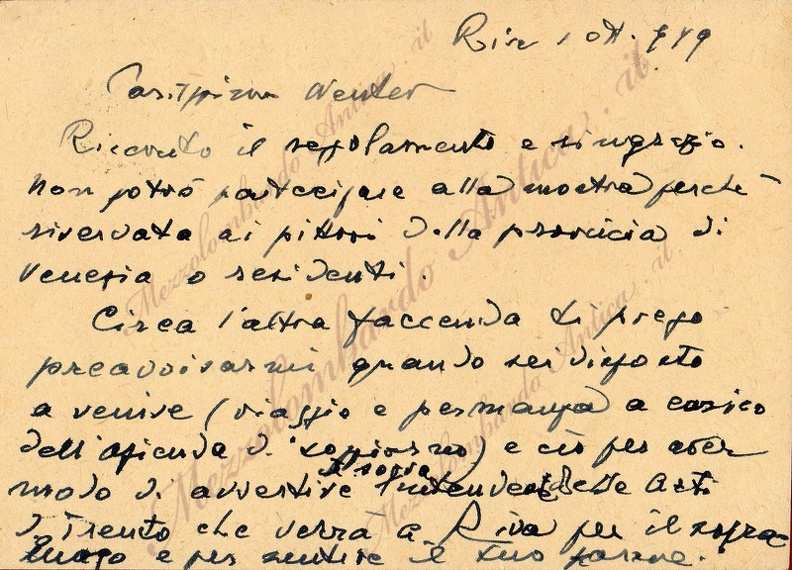 Riva 1 ott. 949
Carissimo Wenter
Ricevuto il regolamento e ringrazio.
Non potrò partecipare alla mostra perchè
riservata ai pittori della provincia di
Venezia o residenti.
Circa l'altra faccenda ti prego
preavvisarmi quando sei disposto
a venire (viaggio e permanenza a carico
dell'azienda di soggiorno) e ciò per aver
modo di avvertire la sovraintendenza delle Arti
di Trento che verrà a Riva per il sopra=
luogo e per sentire il tuo parere.
Mezzolombardo Antica.it
Mezzolombardo Antica.it
Mezzolombardo Antica.it